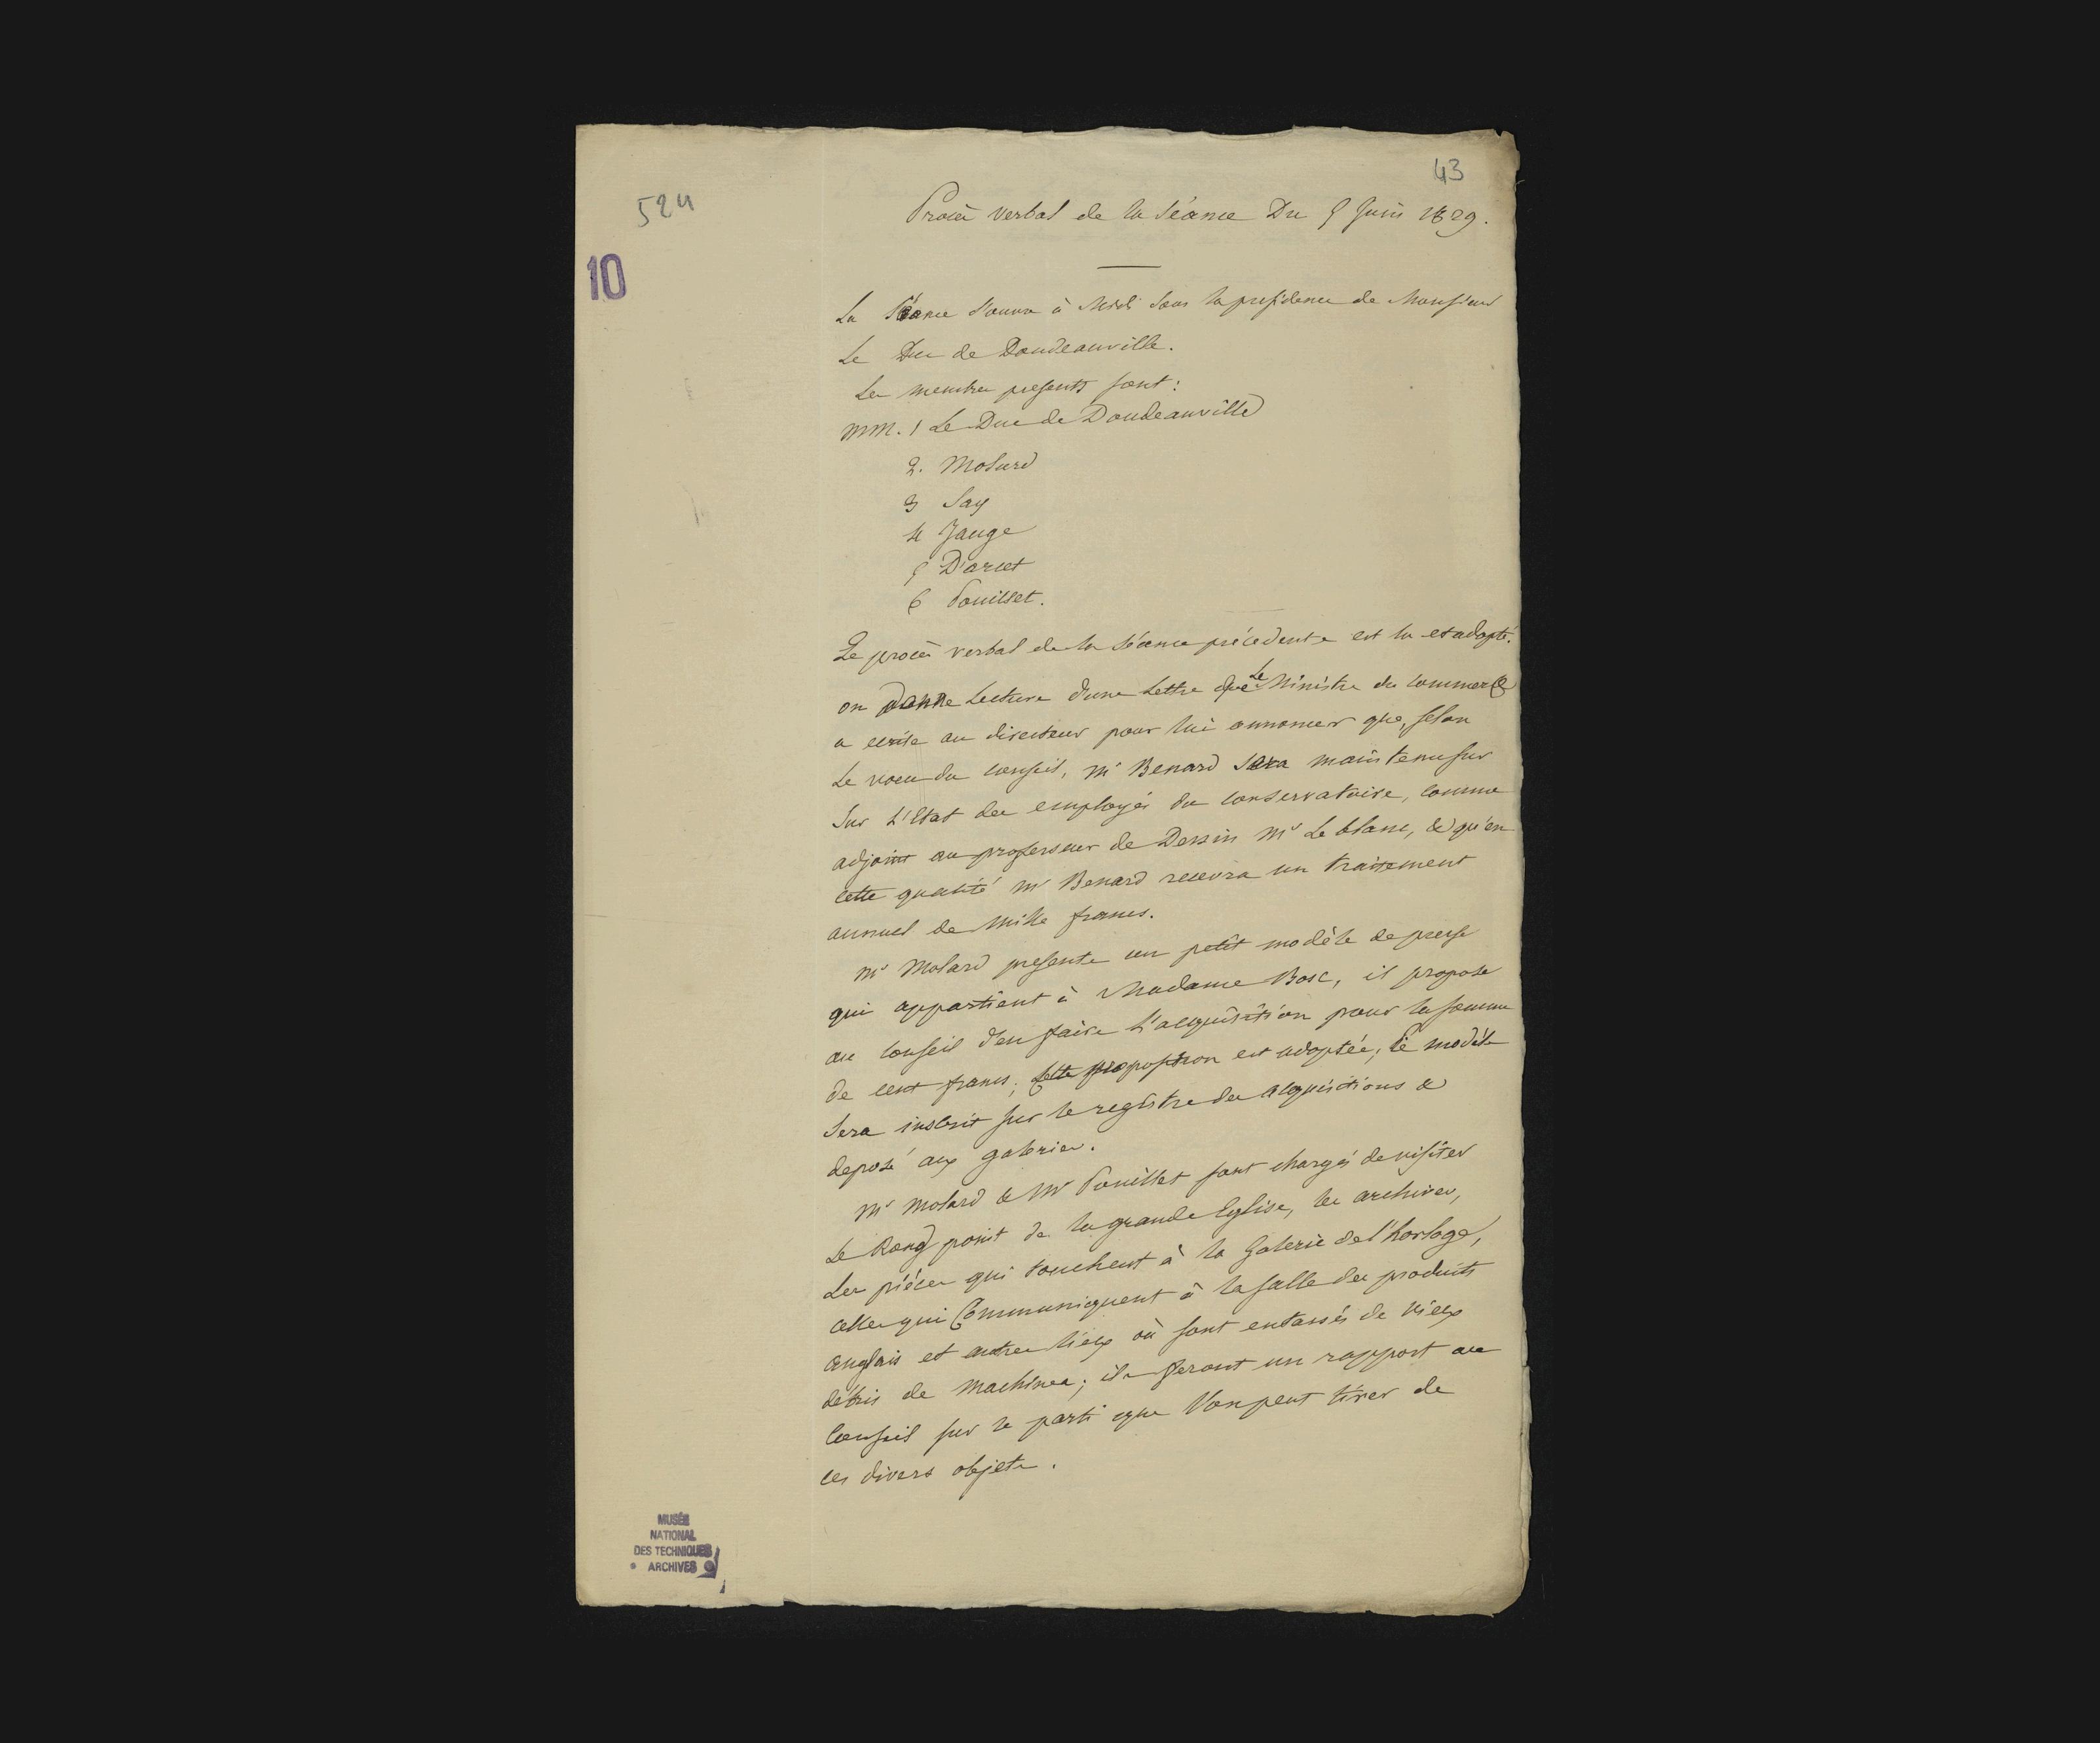 43
524
10
Procès verbal de la séance Du 5 Juin 1829.
La Séance s'ouvre à Midi sous la presidence de Monsieur
Le Duc de Doudeauville.
Les membres presents sont:
MM. 1 Le Duc de Doudeauville
2. Molard
3 Say
4 Jauge
5 D'arcet
6 Pouillet.
Le procès verbal de la séance précedente est lu et adopté.
on donne Lecture d'une Lettre que Le Ministre du Commerce
a ecrite au directeur pour lui annoncer que, selon
Le voeu du conseil, Mr Benard sera maintenu sur
sur L'Etat des employés du conservatoire, comme
adjoint au professeur de Dessin Mr Le blanc, & qu'en
cette qualité Mr Benard recevra un traitement
annuel de Mille francs.
Mr Molard presente un petit modèle de presse
qui appartient à Madame Bosc, il propose
au Conseil d'en faire L'acquisition pour la somme
de cent francs; Cette proposition est adoptée, le modèle
sera inscrit sur le registre des acquisitions &
deposé aux galeries.
Mr Molard & Mr Pouillet sont chargés de visiter
Le Rond point de la grande Eglise, les archives,
Les pièces qui touchent à la Galerie de l'horloge,
celles qui Communiquent à la salle des produits
anglais et autres lieux où sont entassés de vieux
débris de Machines; ils feront un rapport au
Conseil sur le parti que l'on peut tirer de
ces divers objets.
MUSÉE
NATIONAL
DES TECHNIQUES
ARCHIVES